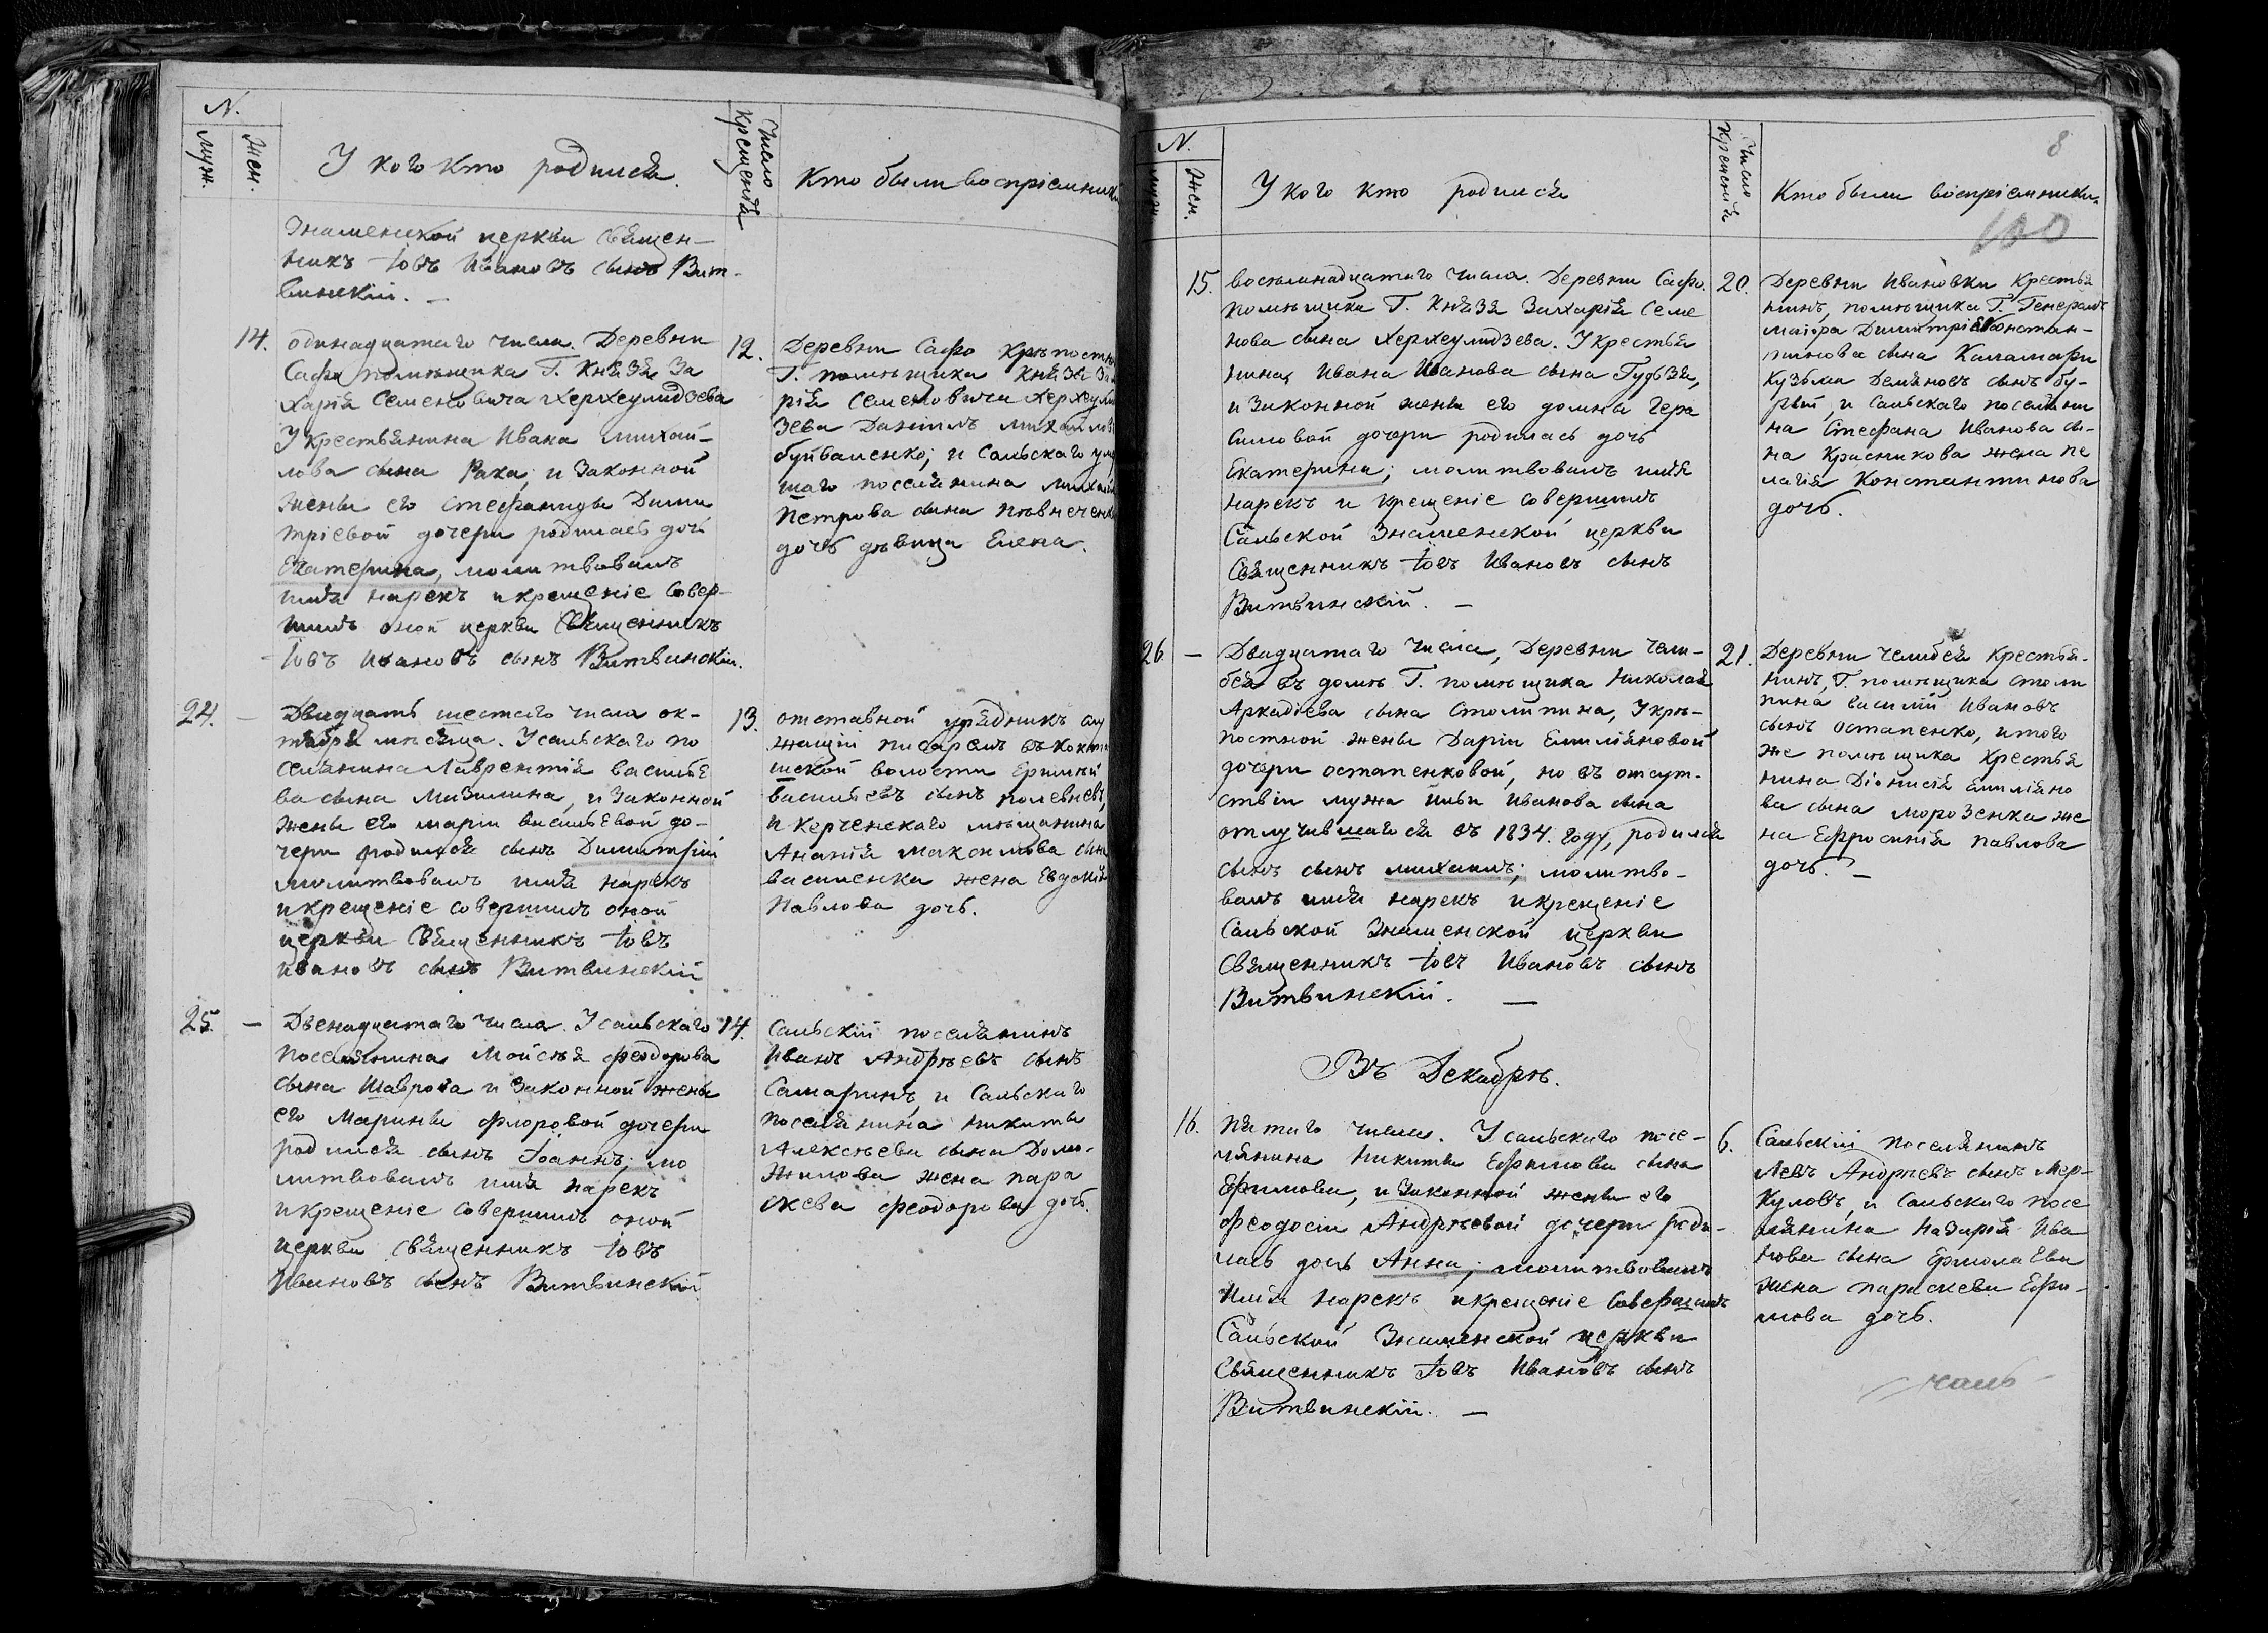 N.
Муж.
Жен.
У кого кто родился.
Число Крещенія
Кто были воспріемники
Знаменской церкви Священ-
никъ Іовъ Ивановъ сынъ Вит-
винскій. —
14.
одинадцатаго числа. Деревни
Сафо помѣщика Г. Князя За
харія Семеновича Херхеулидзева
У крестьянина Ивана Михай-
лова сына Раха, и законной
жены его Стефаниды Дими
тріевой дочери родилась дочь
Екатерина, молитвовалъ
имя нарекъ и крещеніе совер-
шилъ оной церкви Священникъ
Іовъ Ивановъ сынъ Витвинскій.
12.
Деревни Сафо крѣпостн
Г. помѣщика Князя За
рія Семеновича Херхеули
зева Даніилъ Михайлов
буйваленко; и Сальскаго
шаго поселянина Михаи
Петрова сына
дочь дѣвица Елена.
24. —
Двадцать шестаго числа ок-
тября мѣсяца. У сальскаго по
селянина Лаврентія Василье
ва сына Мизилина, и законной
жены его Маріи Васильевой до-
чери родился сынъ Димитрій
молитвовалъ имя нарекъ
и крещеніе совершилъ оной
церкви Священникъ Іовъ
Ивановъ сынъ Витвинскій
13.
отставной урядникъ слу
жащій писаремъ въ
шской волости
Васильевъ сынъ
и Керченскаго мѣщанина
Ананія Максимова сына
Василенка жена Евдокія
Павлова дочь.
25. —
Двенадцатаго числа. У сальскаго
поселянина Моисѣя Феодорова
сына Шаврова и законной жены
его Марины Флоровой дочери
родился сынъ Іоаннъ; мо
литвовалъ имя нарекъ
и крещеніе совершилъ оной
церкви священникъ Іовъ
Ивановъ сынъ Витвинскій
14.
Сальскій поселянинъ
Иванъ Андрѣевъ сынъ
Самаринъ, и Сальскаго
поселянина Никиты
Алексѣева сына Домо-
жилова жена Пара
скева Феодорова дочь.
N.
Муж.
Жен.
У кого кто родился
Число Крещенія
Кто были воспріемники
8
100
15.
восемнадцатаго числа. Деревни Сафо.
помѣщика Г. Князя Захарія Семе
нова сына Херхеулидзева. У крестья
нина, Ивана Иванова сына Гудзя,
и законной жены его Домны Гера
симовой дочери родилась дочь
Екатерина; молитвовалъ имя
нарекъ и крещеніе совершилъ
Сальской Знаменской церкви
Священникъ Іовъ Ивановъ сынъ
Витвинскій. —
20.
Деревни Ивановки крестья
нинъ, помѣщика Г. Генералъ
маіора Димитрія Констан-
тинова сына Каламари
Кузьма Демяновъ сынъ бу-
рый, и Сальскаго поселяни
на Стефана Иванова сы-
на Красникова жена Пе
лагія Константинова
дочь.
26. —
Двадцатаго числа, Деревни Чели-
бея въ домѣ Г. помѣщика Николая
Аркадіева сына Столипина, У крѣ-
постной жены Даріи Емиліяновой
дочери Остапенковой, но въ отсут-
ствіи мужа Ильи Иванова сына
отлучившагося въ 1834. году, родился
сынъ сынъ Михаилъ; молитво-
валъ имя нарекъ и крещеніе
Сальской Знаменской церкви
Священникъ Іовъ Ивановъ сынъ
Витвинскій. —
21.
Деревни Челибея крестья-
нинъ, Г. помѣщика Столи
пина Василій Ивановъ
сынъ Остапенко, и того
же помѣщика крестья
нина Діонисія Емиліяно
ва сына Морозенка же
на Ефросинія Павлова
дочь. —
Въ Декабрѣ.
16.
Пятаго числа. У сальскаго посе-
лянина Никиты Ефимова сына
Ефимова, и законной жены его
Феодосіи Андрѣевой дочери роди-
лась дочь Анна; молитвовалъ
имя нарекъ и крещеніе совершилъ
Сальской Знаменской церкви
Священникъ Іовъ Ивановъ сынъ
Витвинскій. —
6.
Сальскій поселянинъ
Левъ Андрѣевъ сынъ Мер-
куловъ, и Сальскаго посе
лянина Назарія Ива
нова сына Ермолаева
жена Параскева Ефи-
мова дочь.